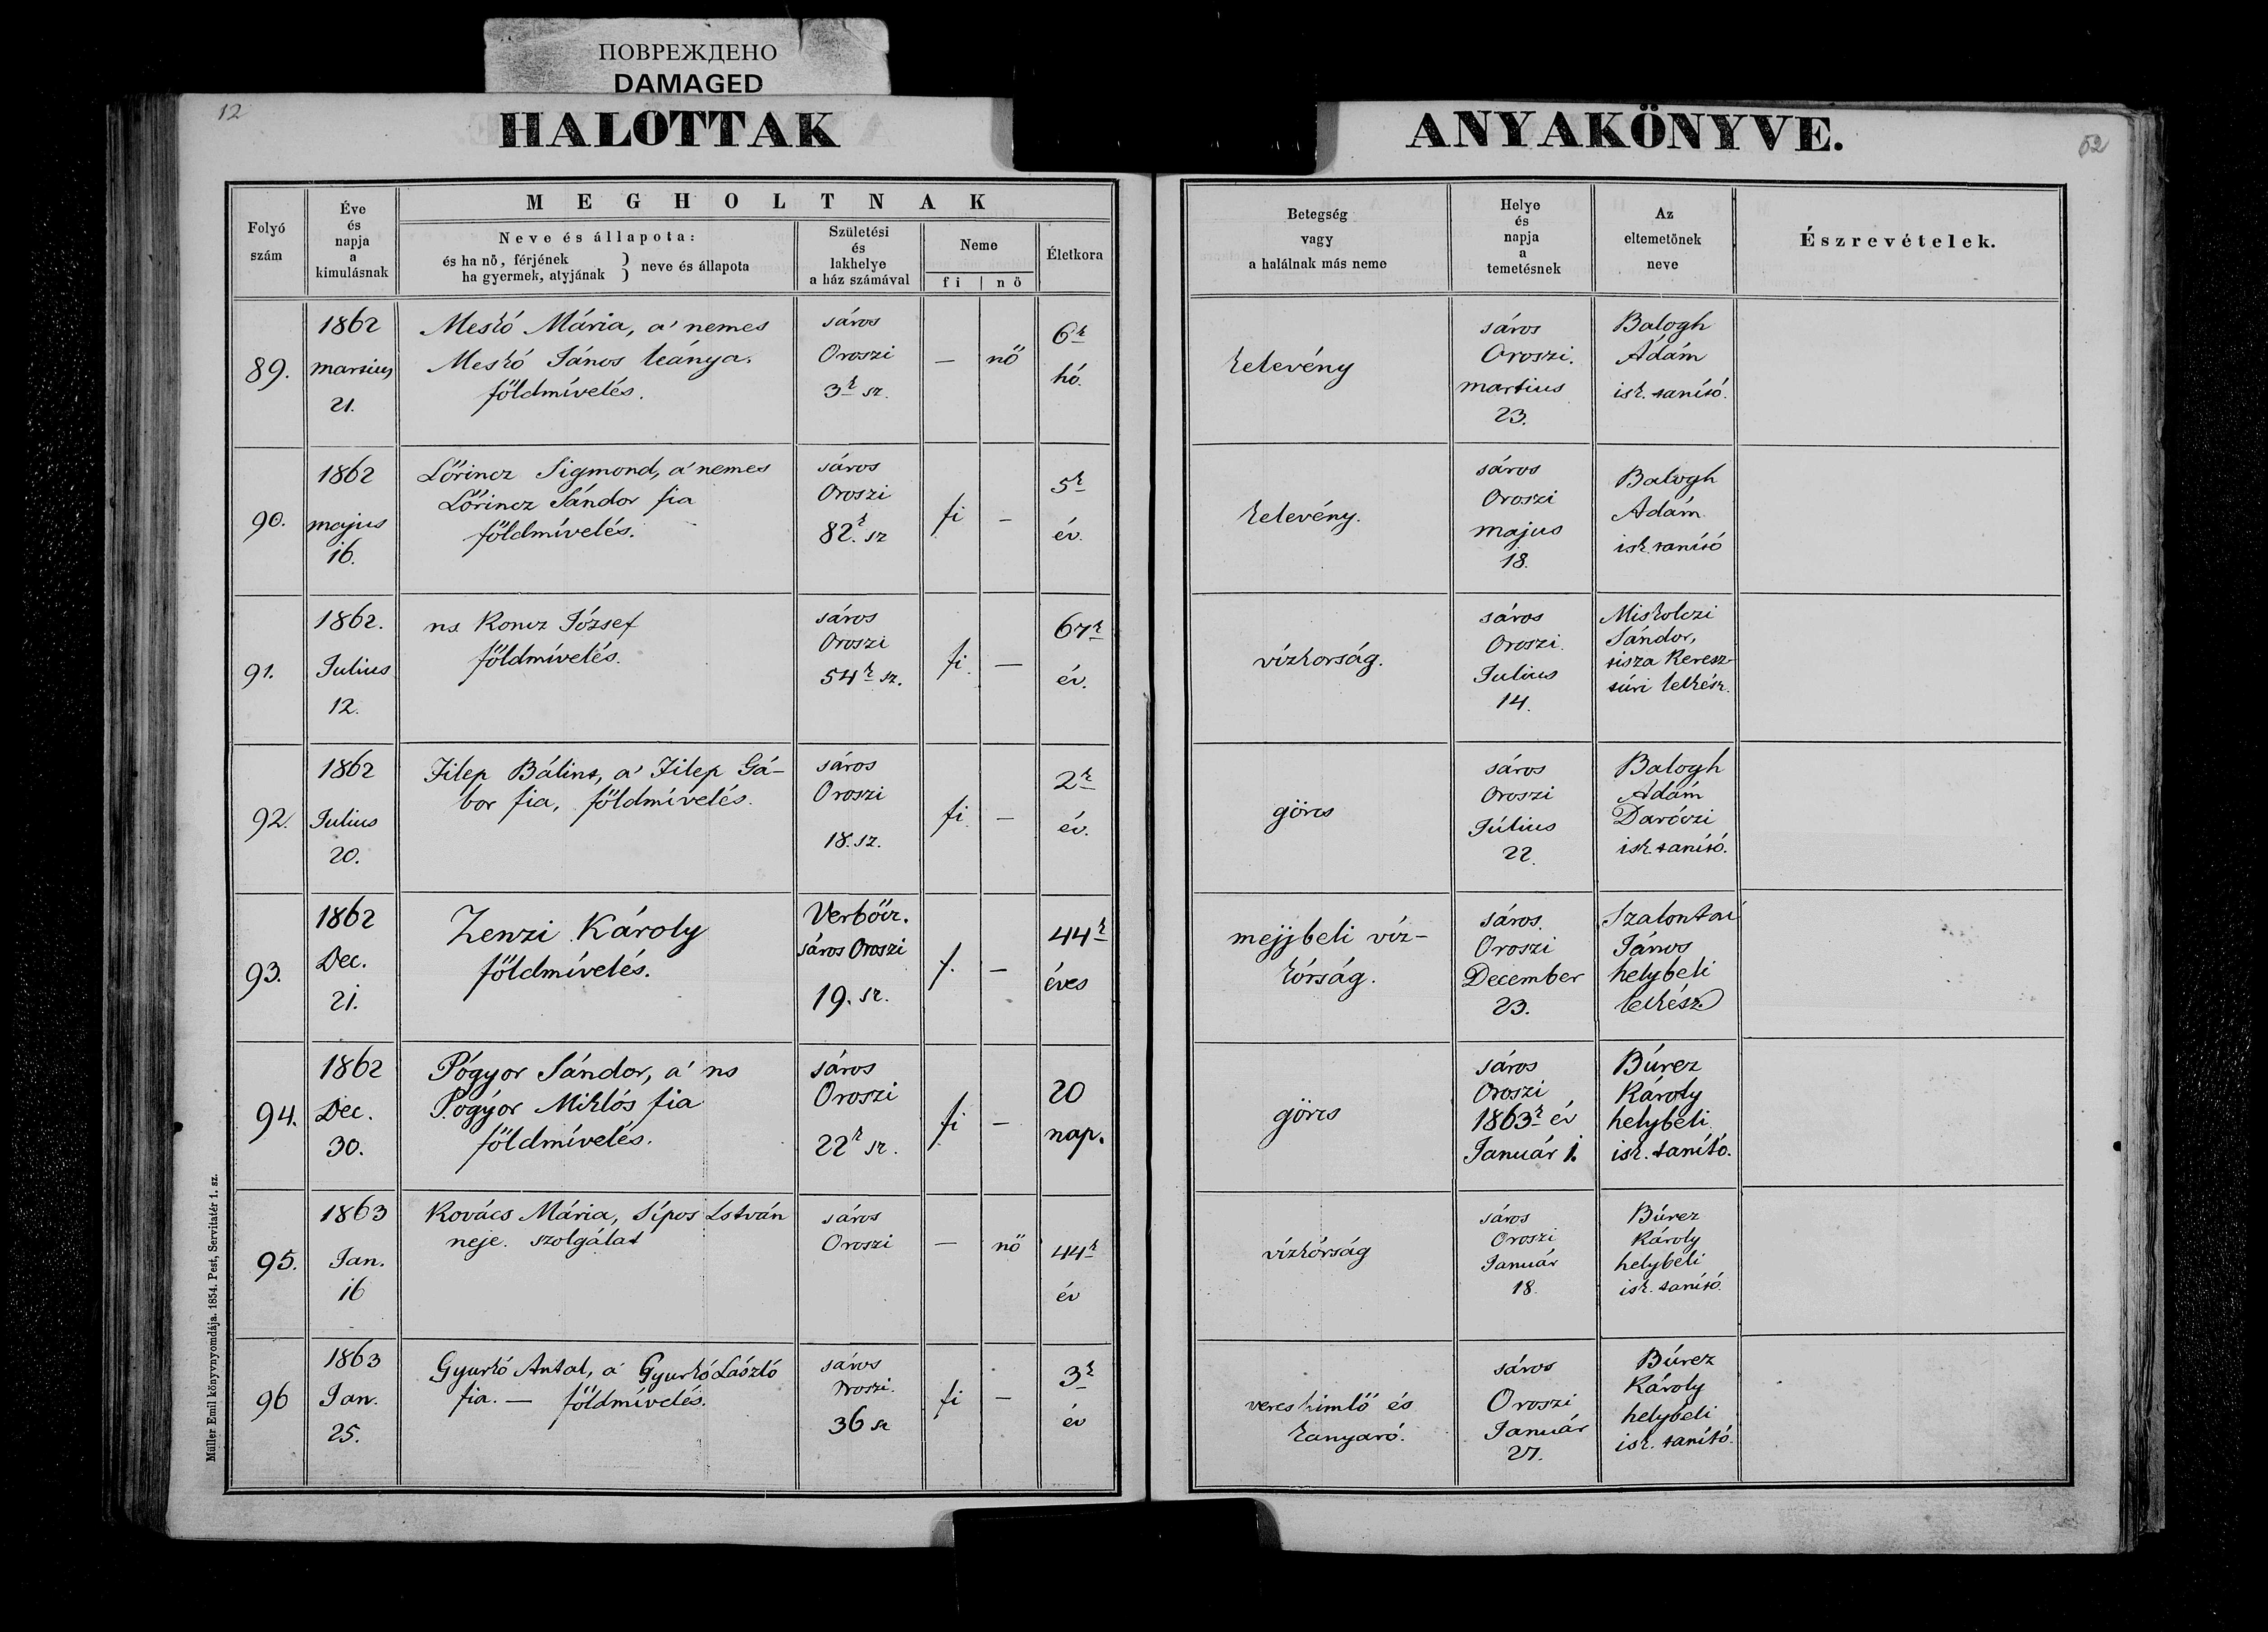 ПОВРЕЖДЕНО
DAMAGED
12
HALOTTAK
ANYAKÖNYVE.
52
Folyó
szám
Éve
és
napja
a
kimulásnak
MEGHOLTNAK
Neve és állapota:
és ha nő, férjének
ha gyermek, atyjának } neve és állapota
Születési
és
lakhelye
a ház számával
Neme
fi | nő
Életkora
Betegség
vagy
a halálnak más neme
Helye
és
napja
a
temetésnek
Az
eltemetőnek
neve
Észrevételek.
89.
1862
martius
21.
Meskó Mária, a' nemes
Meskó János leánya.
földmívelés.
sáros
Oroszi
3k sz.
—
nő
6k
hó.
kelevény
sáros
Oroszi.
martius
23.
Balogh
Ádám
isk. tanító.
90.
1862
majus
16.
Lőrincz Sigmond, a' nemes
Lőrincz Sándor fia
földmívelés.
sáros
Oroszi
82.k sz
fi
—
5k
év.
kelevény.
sáros
Oroszi
majus
18.
Balogh
Adám
isk. tanító
91.
1862.
Julius
12.
ns. Koncz József
földmívelés.
sáros
Oroszi
54k sz.
fi
—
67k
év.
vízkorság.
sáros
Oroszi.
Julius
14.
Miskolczi
Sándor,
tisza Keresz-
túri lelkész.
92.
1862
Julius
20.
Filep Bálint, a' Filep Gá-
bor fia, földmívelés.
sáros
Oroszi
18. sz.
fi.
—
2k
év.
görcs
sáros
Oroszi
Július
22.
Balogh
Adám
Daróczi
isk. tanító.
93.
1862
Dec.
21.
Zenzi Károly
földmívelés.
Verbőcz.
sáros Oroszi
19. sz.
f.
—
44k
éves
mejjbeli víz-
kórság.
sáros.
Oroszi
December
23.
Szalontai
János
helybeli
lelkész
94.
1862
Dec.
30.
Pógyor Sándor, a' ns
Pógyor Miklós fia
földmívelés.
sáros
Oroszi
22k sz.
fi
—
20
nap.
görcs
sáros
Oroszi
1863k év
Január 1.
Búrez
Károly
helybeli
isk. tanító.
95.
1863
Jan.
16
Kovács Mária, Sípos István
neje. szolgálat
sáros
Oroszi
—
nő
44k
év
vízkórság
sáros
Oroszi
Január
18.
Búrez
Károly
helybeli
isk. tanító.
96
1863
Jan.
25.
Gyurkó Antal, a' Gyurkó László
fia. — földmívelés.
sáros
Oroszi.
36 sz
fi
—
3k
év
veres himlő és
kanyaró.
sáros
Oroszi
Január
27.
Búrez
Károly
helybeli
isk. tanító.
Müller Emil könyvnyomdája. 1854. Pest, Servitatér 1. sz.